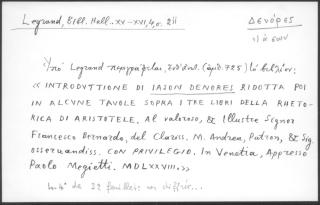 Legrand, Bibl. Hell. XV-XVI, 4, σ. 211
Δενόρες
Ὑπὸ Legrand περιγράφεται, (ἀρ. 725) τὸ βιβλίον:
« INTRODVTTIONE DI IASON DENORES RIDOTTA POI
IN ALCVNE TAVOLE SOPRA I TRE LIBRI DELLA RHETO-
RICA DI ARISTOTELE. Al valoroso, & Illustre Signor
Francesco Bernardo, del Clariss. M. Andrea, Patron, & Sig.
osseruandiss. CON PRIVILEGIO. In Venetia, Appresso
Paolo Megietti. MDLXXVIII.»
In-4° de 22 feuillets non chiffrés...